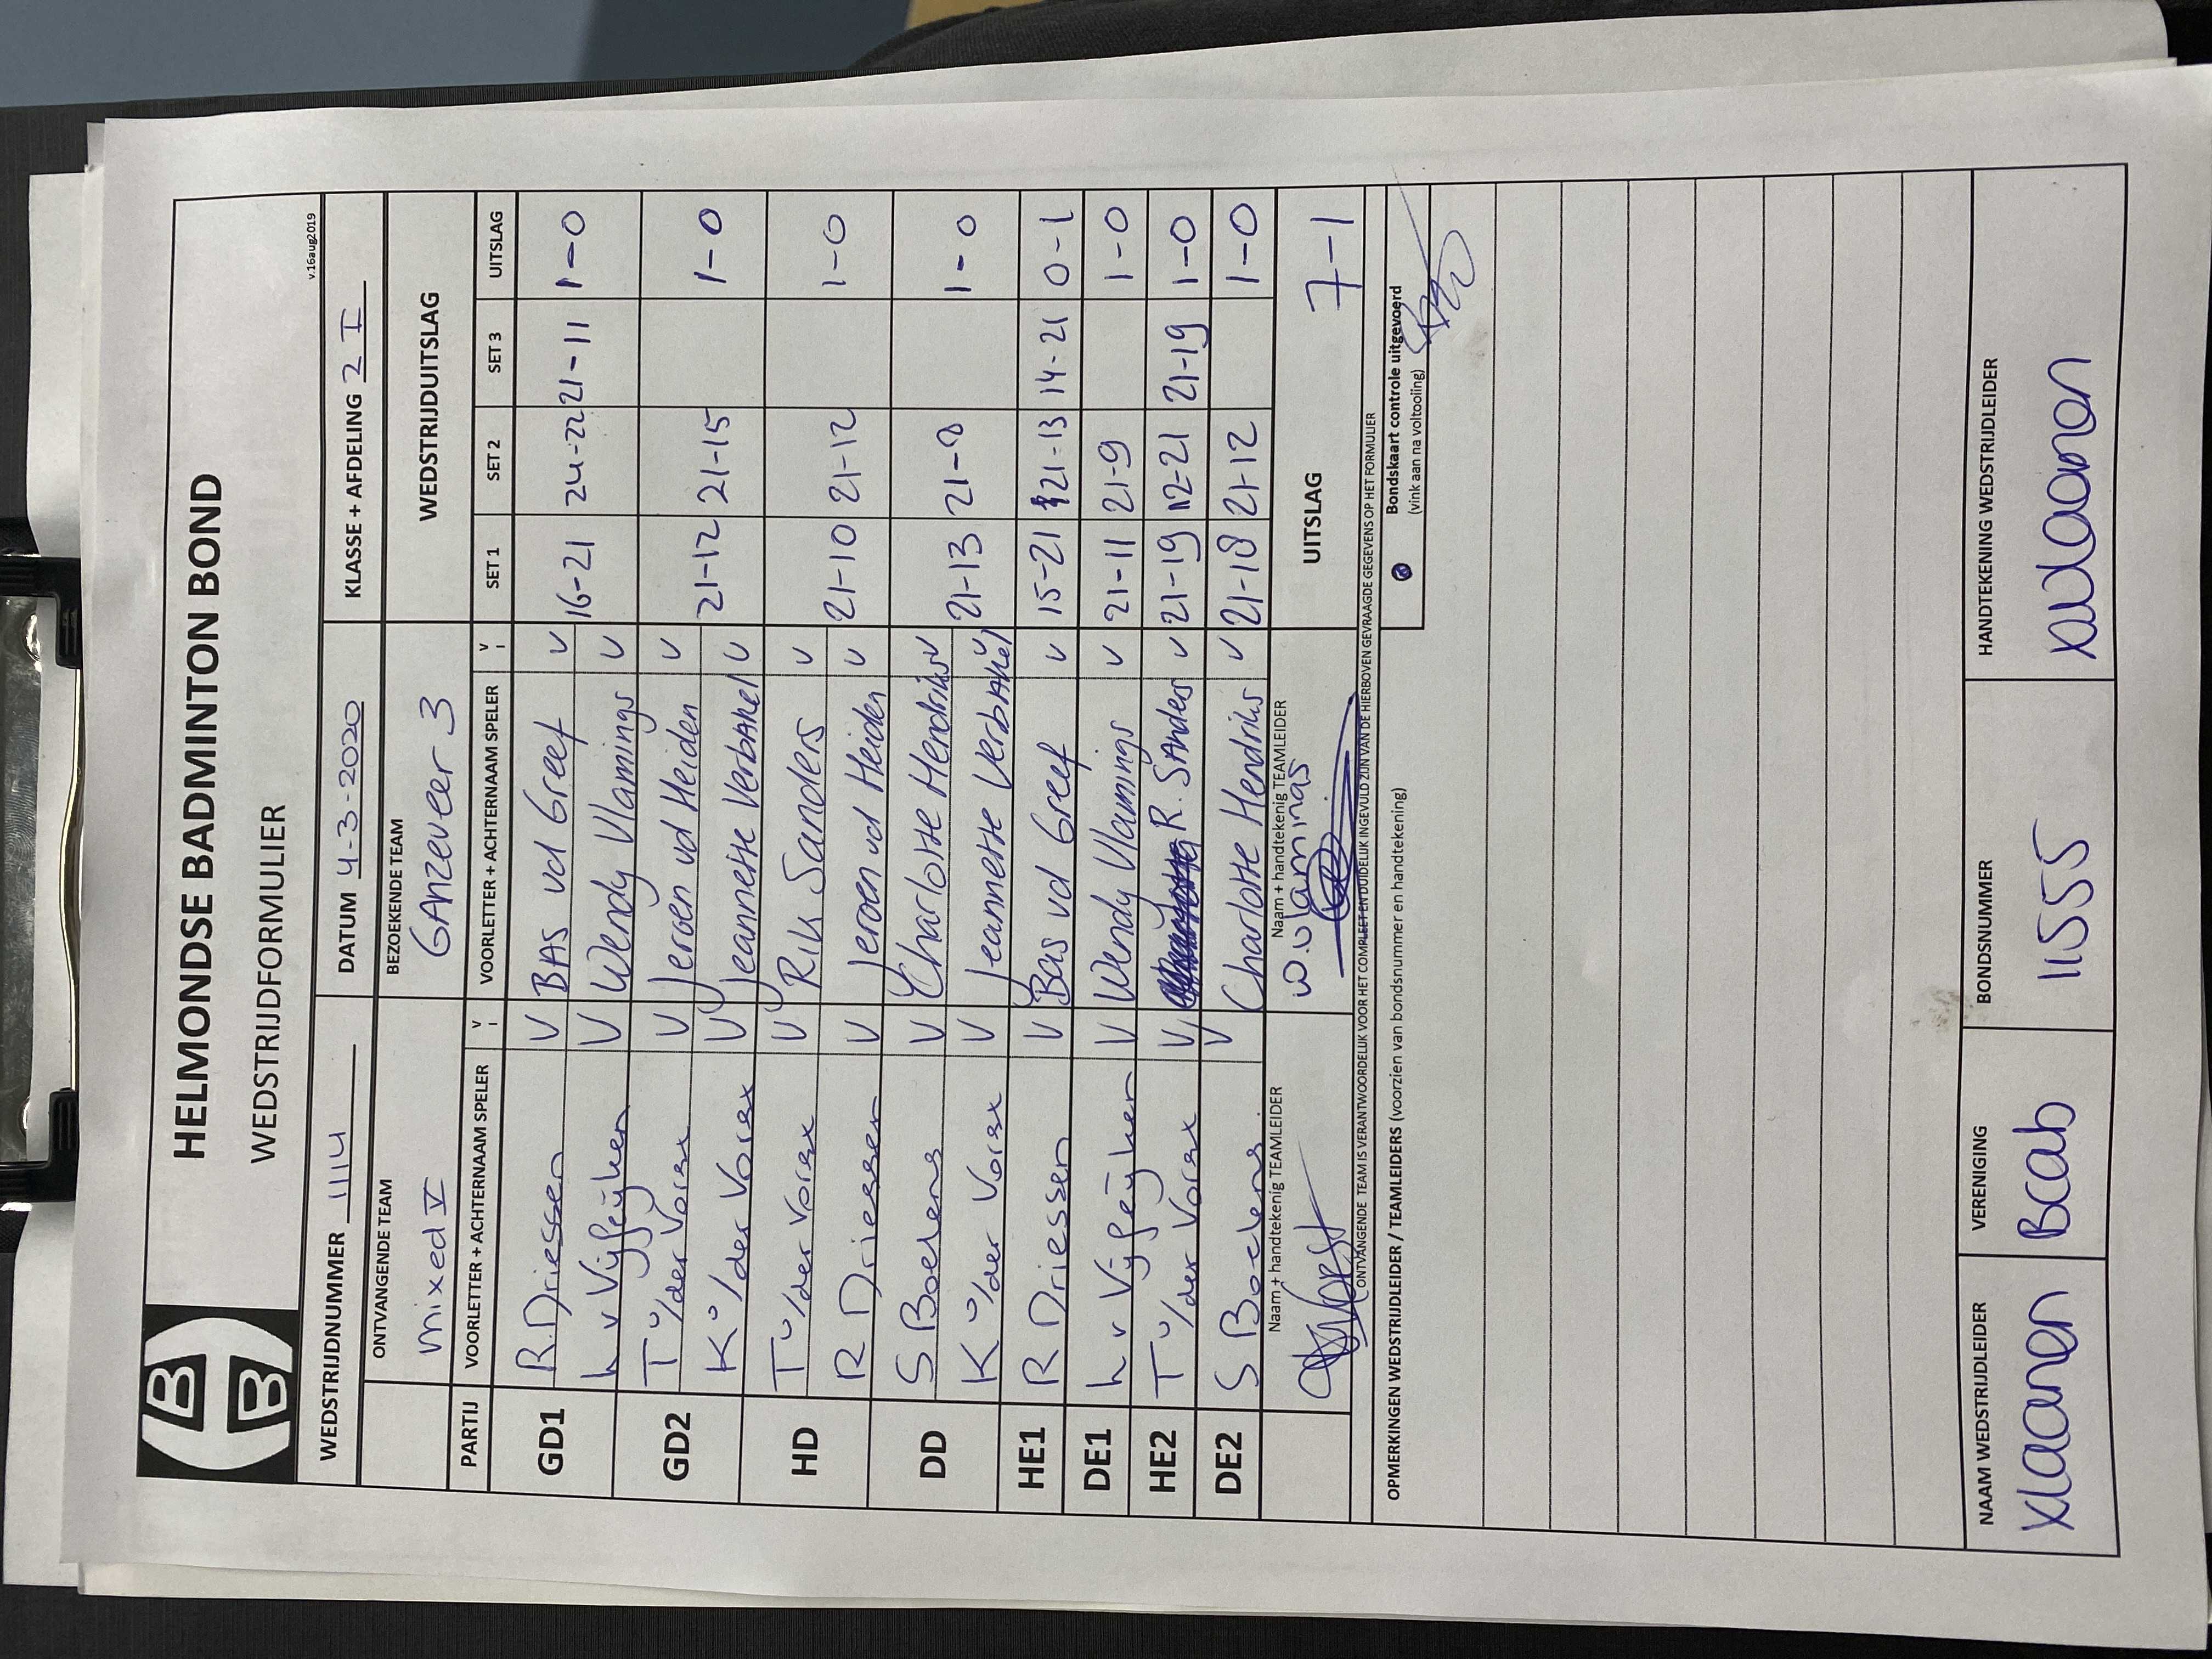 HELMONDSE BADMINTON BOND
WEDSTRIJDFORMULIER
v.16aug2019
WEDSTRIJDNUMMER 1114 DATUM 4-3-2020 KLASSE + AFDELING 2 I
ONTVANGENDE TEAM BEZOEKENDE TEAM WEDSTRIJDUITSLAG
mixed V GANzeveer 3
PARTIJ VOORLETTER + ACHTERNAAM SPELER V I VOORLETTER + ACHTERNAAM SPELER V I SET 1 SET 2 SET 3 UITSLAG
GD1 R. Driessen V BAS vd Greef V 16-21 24-22 21-11 1-0
L v Vijfeijken V Wendy Vlamings V
GD2 T v/der Vorst V Jeroen vd Heiden V 21-12 21-15 1-0
K v/der Vorst V Jeannette Verbakel V
HD T v/der Vorst V Rik Sanders V 21-10 21-12 1-0
R Driessen V Jeroen vd Heiden V
DD S Boelens V Charlotte Hendriks V 21-13 21-8 1-0
K v/der Vorst V Jeannette Verbakel V
HE1 R Driessen V Bas vd Greef V 15-21 21-13 14-21 0-1
DE1 L v Vijfeijken V Wendy Vlamings V 21-11 21-9 1-0
HE2 T v/der Vorst V R. Sanders V 21-19 12-21 21-19 1-0
DE2 S Boelens V Charlotte Hendriks V 21-18 21-12 1-0
Naam + handtekenig TEAMLEIDER Naam + handtekenig TEAMLEIDER UITSLAG 7-1
W. Vlamings
ONTVANGENDE TEAM IS VERANTWOORDELIJK VOOR HET COMPLEET EN DUIDELIJK INGEVULD ZIJN VAN DE HIERBOVEN GEVRAAGDE GEGEVENS OP HET FORMULIER
OPMERKINGEN WEDSTRIJDLEIDER / TEAMLEIDERS (voorzien van bondsnummer en handtekening)
Bondskaart controle uitgevoerd
(vink aan na voltooiing)
NAAM WEDSTRIJDLEIDER VERENIGING BONDSNUMMER HANDTEKENING WEDSTRIJDLEIDER
Xlaanen Bcab 11555 Xvlaanen